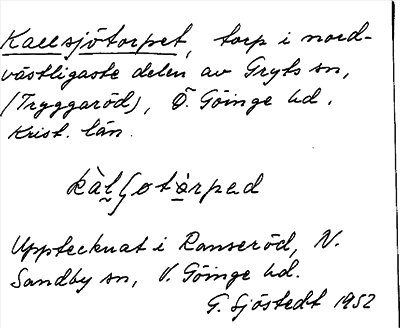 Kallsjötorpet, torp i nord-
västligaste delen av Gryts sn,
(Tryggaröd), Ö. Göinge hd.
Krist. län.
kàlʃotàrpad
Upptecknat i Ranseröd, N.
Sandby sn, V. Göinge hd.
G. Sjöstedt 1952